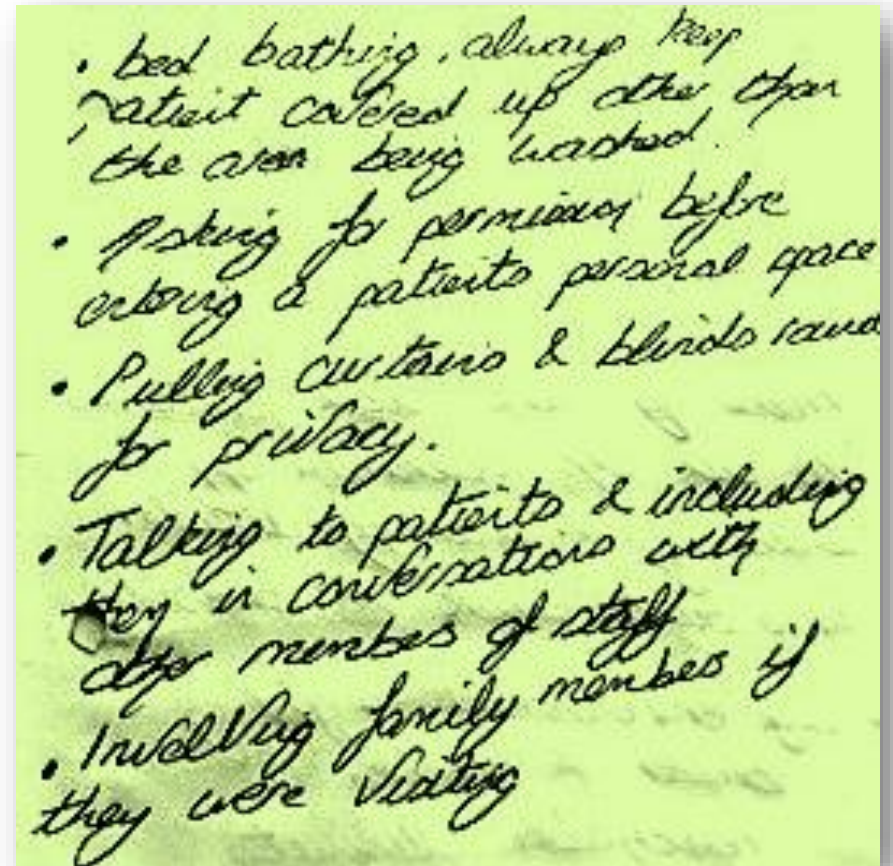 • bed bathing, always keep
patient covered up other than
the area being washed.
• Asking for permission before
entering a patients personal space
• Pulling curtains & blinds round
for privacy.
• Talking to patients & including
them in conversations with
other members of staff
• Involving family members if
they were visiting